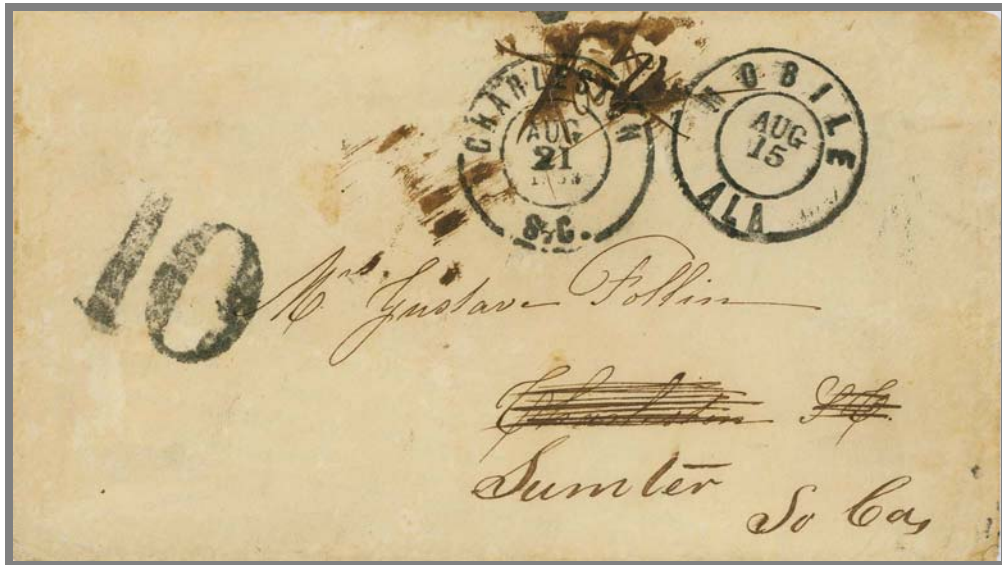 CHARLESTON
AUG
21
S.C.
MOBILE
AUG
15
ALA
10
Mrs. Gustave Follin
Charleston SC.
Sumter
So Ca,